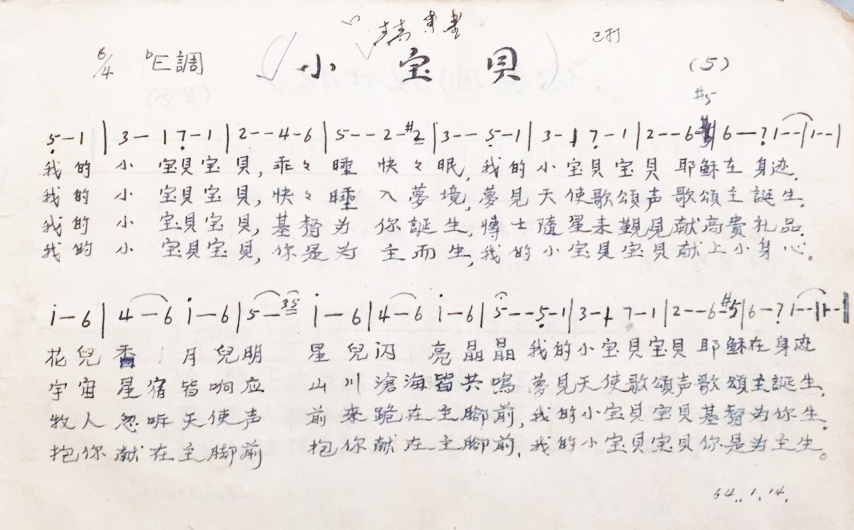 已打
6/4 ♭E調 小宝贝 (5)
#5
5-1 | 3- 1 7-1 | 2--4-6 | 5--2-#2 | 3--5-1 | 3-1 7-1 | 2--6-#5 | 6-7 1-- | 1--
我的小宝貝宝貝,乖々睡快々眠,我的小宝貝宝貝耶穌在身边.
我的小宝貝宝貝,快々睡入夢境,夢見天使歌頌声歌頌主誕生.
我的小宝貝宝貝,基督为你誕生,博士隨星来觀見献高贵礼品.
我的小宝貝宝貝,你是为主而生,我的小宝貝宝貝献上小身心。
i-6 | 4-6 i-6 | 5-35 i-6 | 4-6 i-6 | 5--5-1 | 3-1 7-1 | 2--6-#5 | 6-7 1-- | 1-
花兒香 月兒明 星兒闪 亮晶晶 我的小宝貝宝貝耶穌在身边
宇宙星宿皆响应 山川滄海皆共鳴 夢見天使歌頌声歌頌主誕生.
牧人忽听天使声 前来跪在主腳前,我的小宝貝宝貝基督为你生.
抱你献在主腳前 抱你献在主腳前,我的小宝貝宝貝你是为主生。
64.1.14.